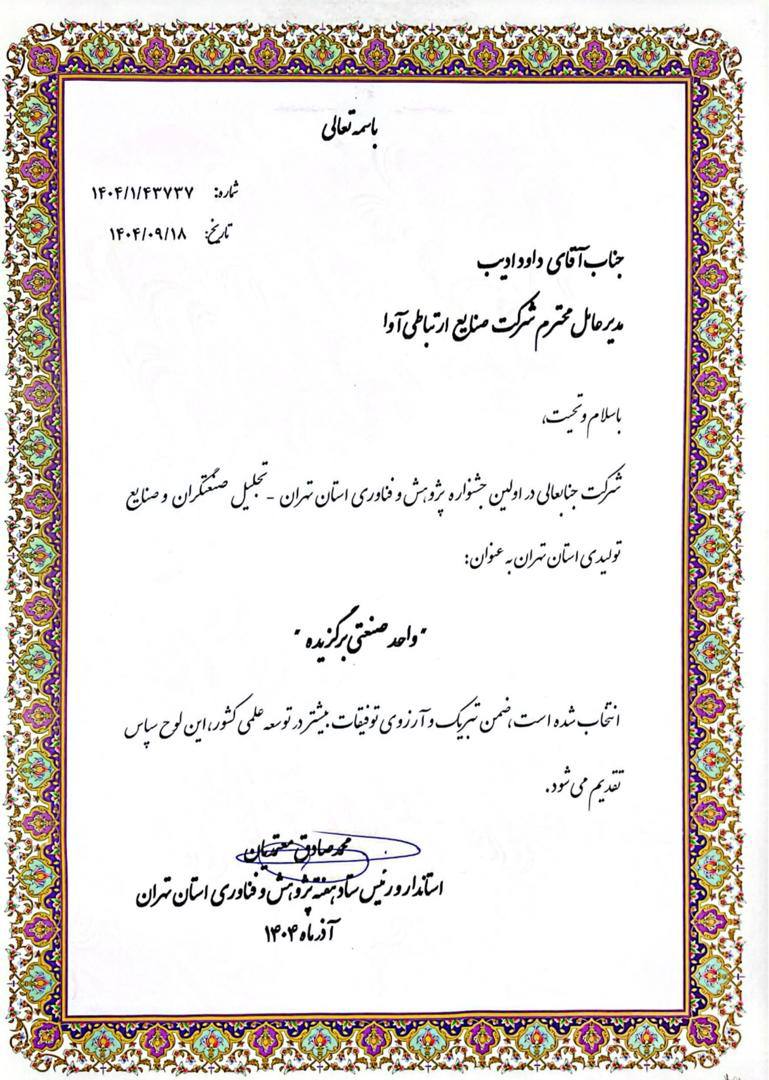 باسمه تعالی
شماره: ۱۴۰۴/۱/۴۳۷۳۷
تاریخ: ۱۴۰۴/۰۹/۱۸
جناب آقای داود ادیب
مدیرعامل محترم شرکت صنایع ارتباطی آوا
باسلام و تحیت،
شرکت جنابعالی در اولین جشنواره پژوهش و فناوری استان تهران - تجلیل صنعتگران و صنایع
تولیدی استان تهران به عنوان:
"واحد صنعتی برگزیده"
انتخاب شده است، ضمن تبریک و آرزوی توفیقات بیشتر در توسعه علمی کشور، این لوح سپاس
تقدیم می شود.
محمدصادق معتمدیان
استاندار و رئیس ستاد هفته پژوهش و فناوری استان تهران
آذرماه ۱۴۰۴